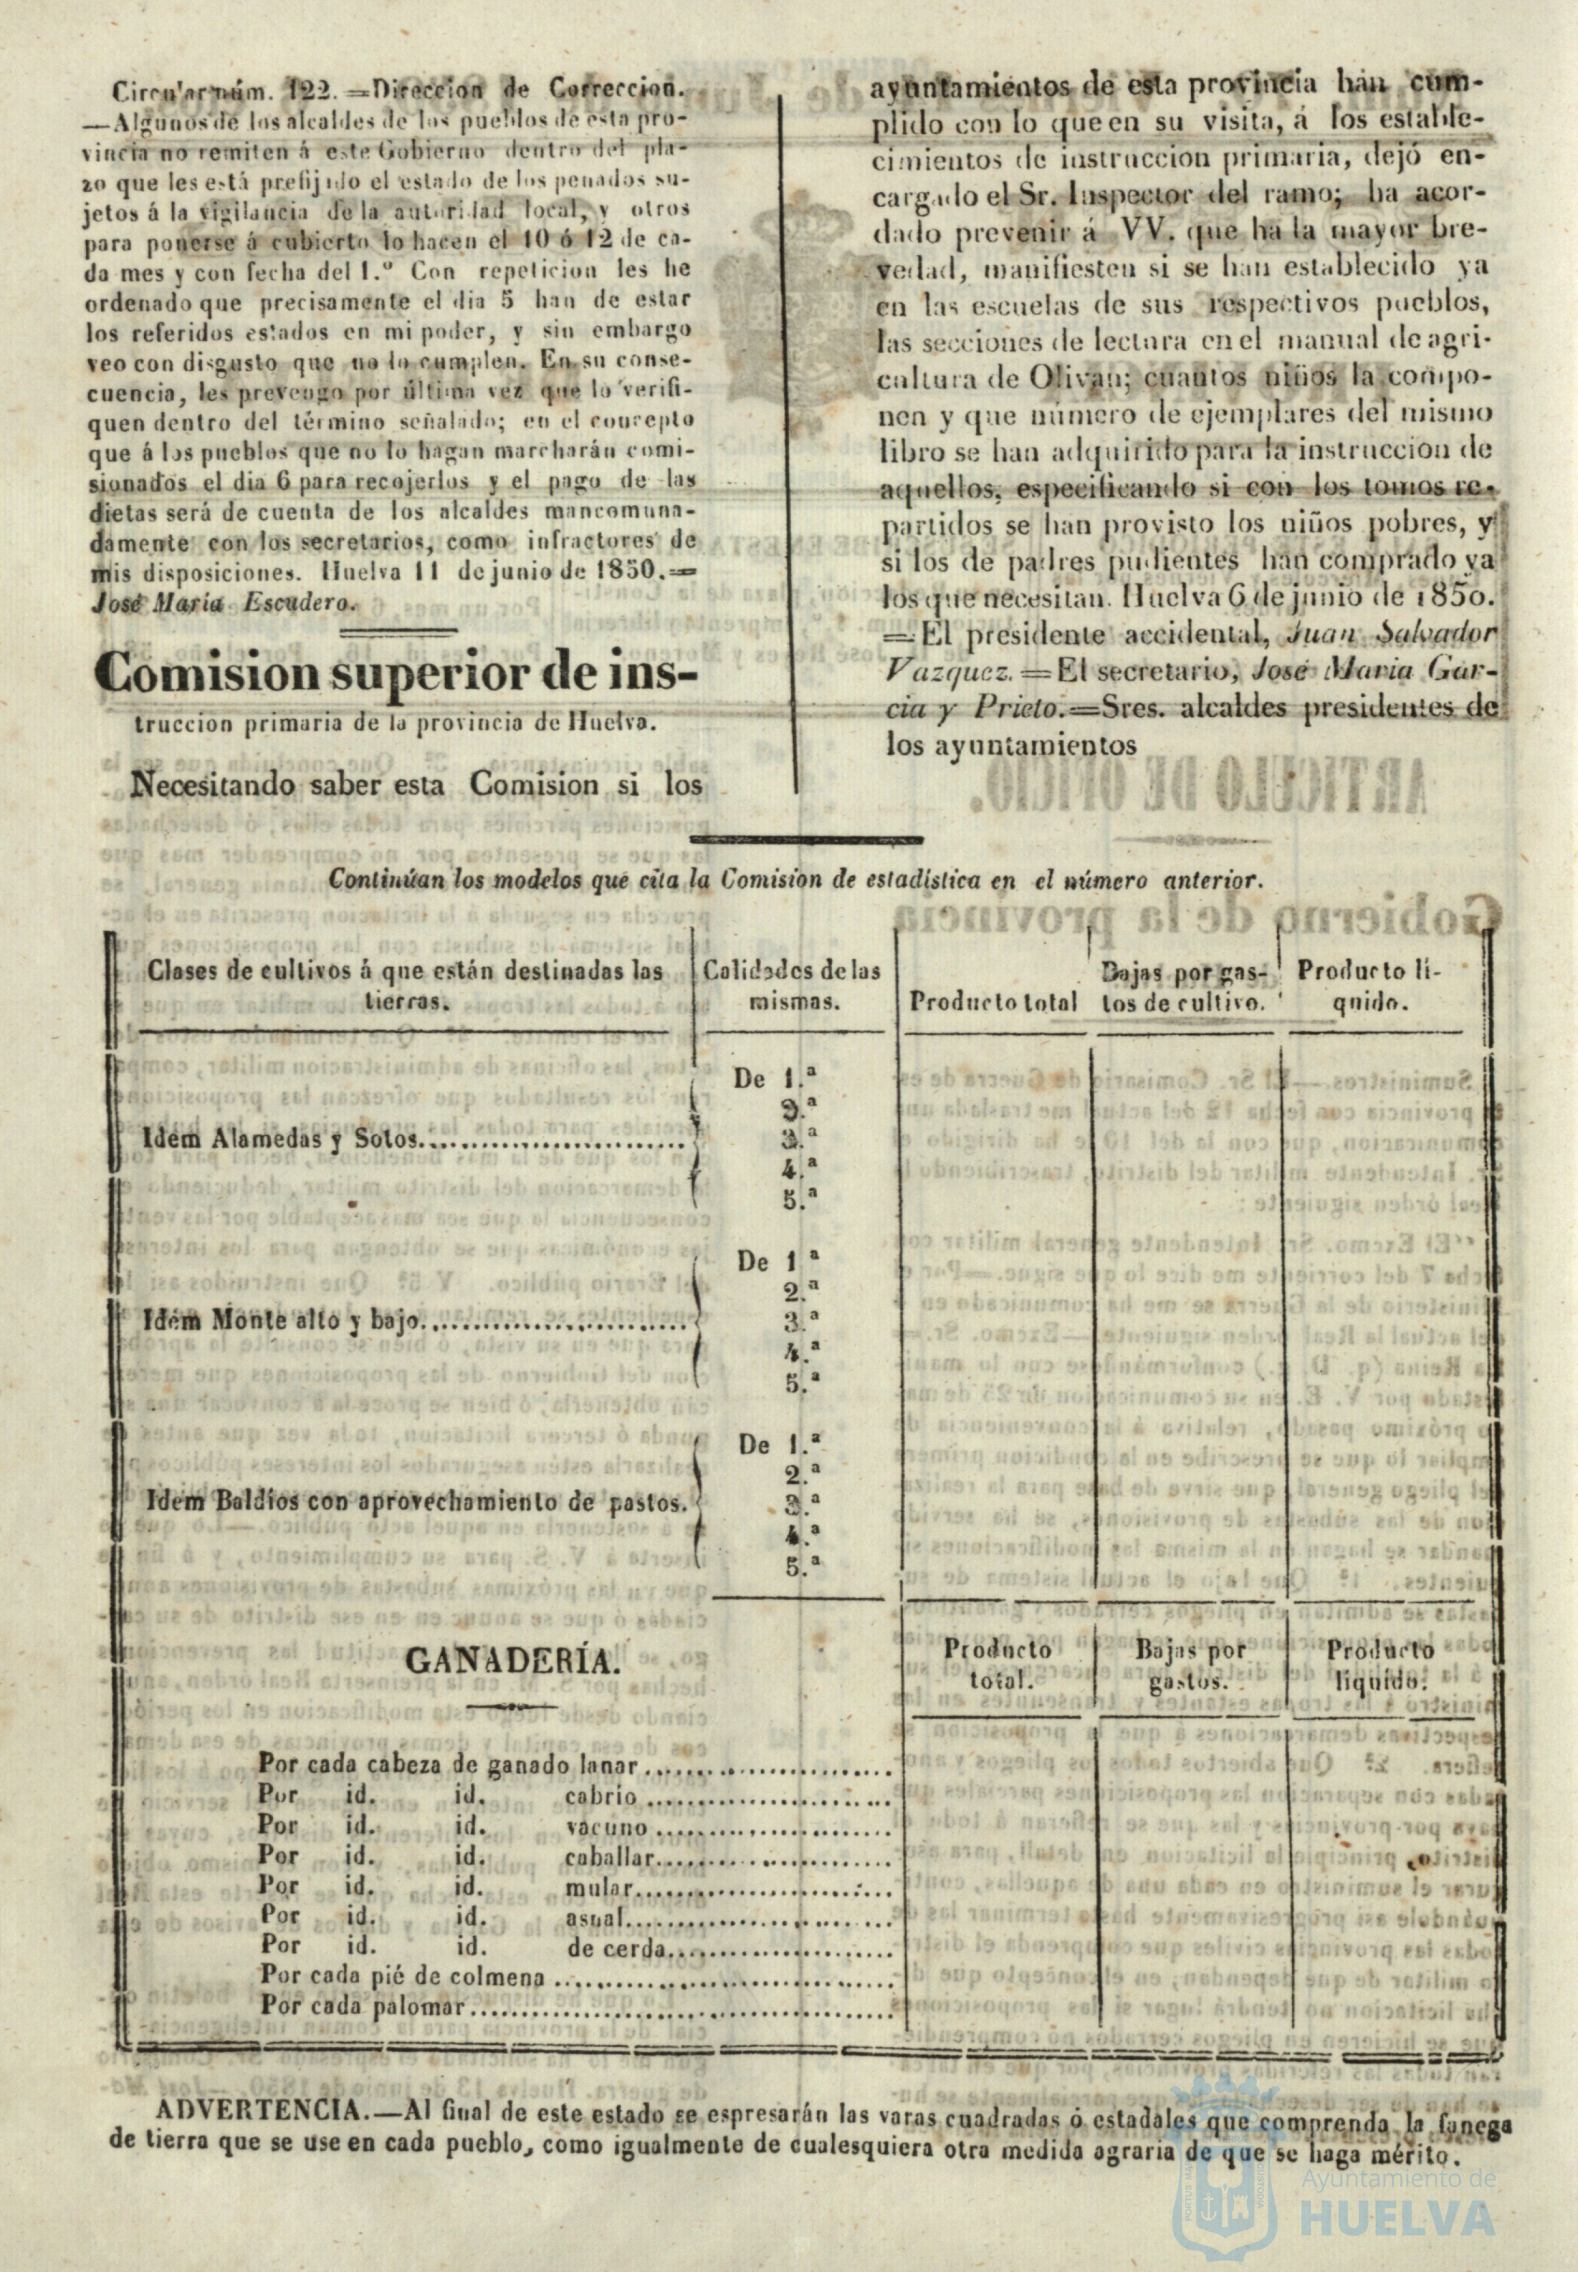 Circular núm. 122.=Direccion de Correccion.
—Algunos de los alcaldes de los pueblos de esta pro-
vincia no remiten á este Gobierno dentro del pla-
zo que les está prefijado el estado de los penados su-
jetos á la vigilancia de la autoridad local, y otros
para ponerse á cubierto lo hacen el 10 ó 12 de ca-
da mes y con fecha del 1.º Con repeticion les he
ordenado que precisamente el dia 5 han de estar
los referidos estados en mi poder, y sin embargo
veo con disgusto que no lo cumplen. En su conse-
cuencia, les prevengo por última vez que lo verifi-
quen dentro del término señalado; en el concepto
que á los pueblos que no lo hagan marcharán comi-
sionados el dia 6 para recojerlos y el pago de las
dietas será de cuenta de los alcaldes mancomuna-
damente con los secretarios, como infractores de
mis disposiciones. Huelva 11 de junio de 1850.=
José Maria Escudero.
Comision superior de ins-
truccion primaria de la provincia de Huelva.
Necesitando saber esta Comision si los
ayuntamientos de esta provincia han cum-
plido con lo que en su visita, á los estable-
cimientos de instruccion primaria, dejó en-
cargado el Sr. Inspector del ramo; ha acor-
dado prevenir á VV. que ha la mayor bre-
vedad, manifiesten si se han establecido ya
en las escuelas de sus respectivos pueblos,
las secciones de lectura en el manual de agri-
cultura de Olivan; cuantos niños la compo-
nen y que número de ejemplares del mismo
libro se han adquirido para la instruccion de
aquellos, especificando si con los tomos re-
partidos se han provisto los niños pobres, y
si los de padres pudientes han comprado ya
los que necesitan. Huelva 6 de junio de 1850.
=El presidente accidental, Juan Salvador
Vazquez.=El secretario, José Maria Gar-
cia y Prieto.=Sres. alcaldes presidentes de
los ayuntamientos
Continúan los modelos que cita la Comision de estadística en el número anterior.
Clases de cultivos á que están destinadas las
tierras.
Calidades de las
mismas.
Producto total
Bajas por gas-
tos de cultivo.
Producto lí-
quido.
Idem Alamedas y Sotos..........................
De 1.ª
2.ª
3.ª
4.ª
5.ª
Idem Monte alto y bajo..........................
De 1.ª
2.ª
3.ª
4.ª
5.ª
Idem Baldíos con aprovechamiento de pastos.
De 1.ª
2.ª
3.ª
4.ª
5.ª
GANADERÍA.
Producto
total.
Bajas por
gastos.
Producto
líquido.
Por cada cabeza de ganado lanar........................
Por id. id. cabrio........................
Por id. id. vacuno........................
Por id. id. caballar........................
Por id. id. mular........................
Por id. id. asnal........................
Por id. id. de cerda........................
Por cada pié de colmena................................
Por cada palomar........................................
ADVERTENCIA.—Al final de este estado se espresarán las varas cuadradas ó estadales que comprenda la fanega
de tierra que se use en cada pueblo, como igualmente de cualesquiera otra medida agraria de que se haga mérito.
Ayuntamiento de
HUELVA